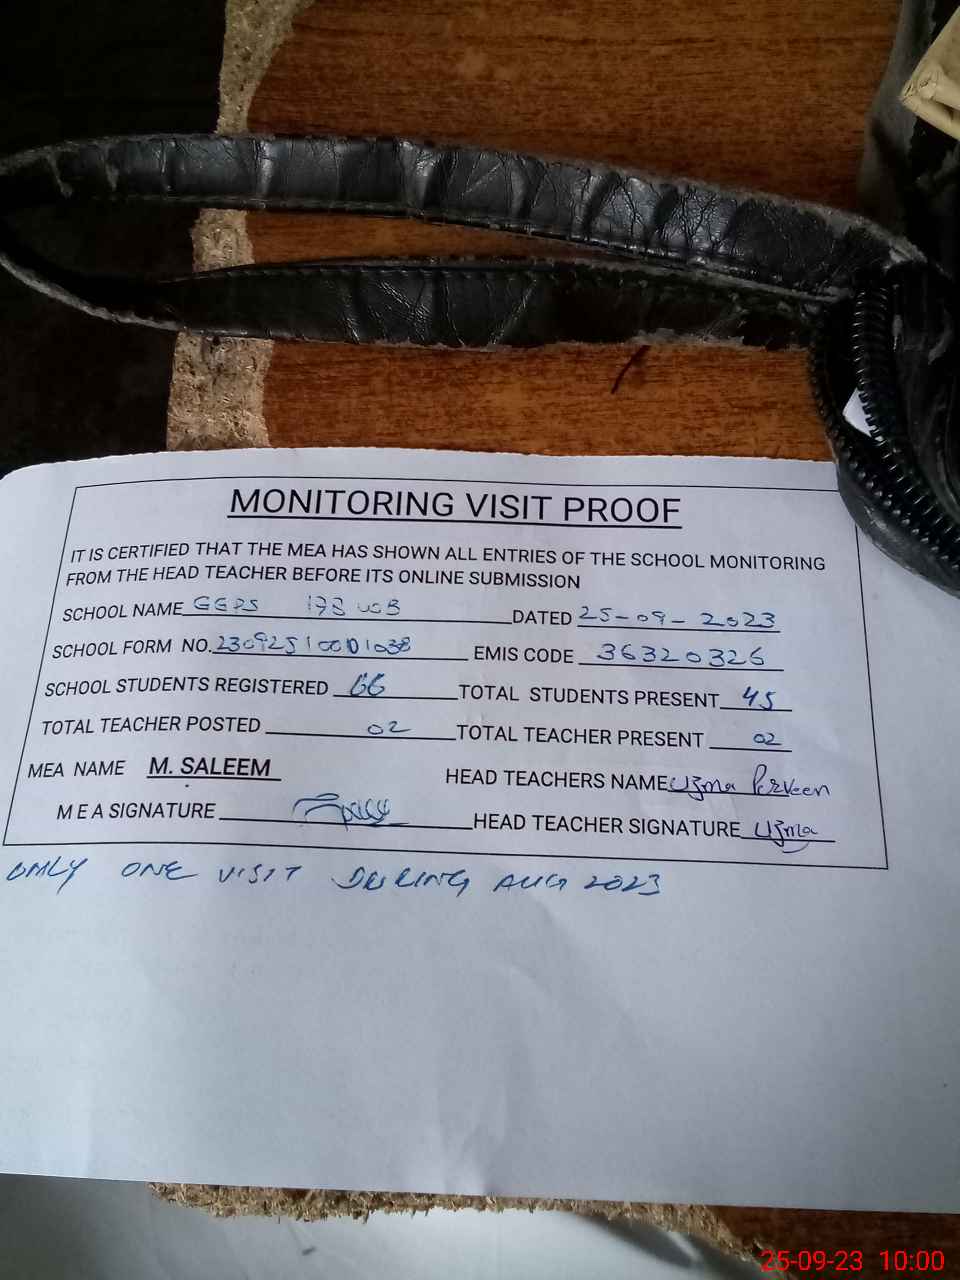 MONITORING VISIT PROOF
IT IS CERTIFIED THAT THE MEA HAS SHOWN ALL ENTRIES OF THE SCHOOL MONITORING
FROM THE HEAD TEACHER BEFORE ITS ONLINE SUBMISSION
SCHOOL NAME GGPS DATED 25-09-2023
SCHOOL FORM NO. EMIS CODE 36320326
SCHOOL STUDENTS REGISTERED 66 TOTAL STUDENTS PRESENT 45
TOTAL TEACHER POSTED 02 TOTAL TEACHER PRESENT 02
MEA NAME M. SALEEM HEAD TEACHERS NAME Uzma Perveen
M E A SIGNATURE HEAD TEACHER SIGNATURE Uzma
ONLY ONE VISIT DURING AUG 2023
25-09-23 10:00